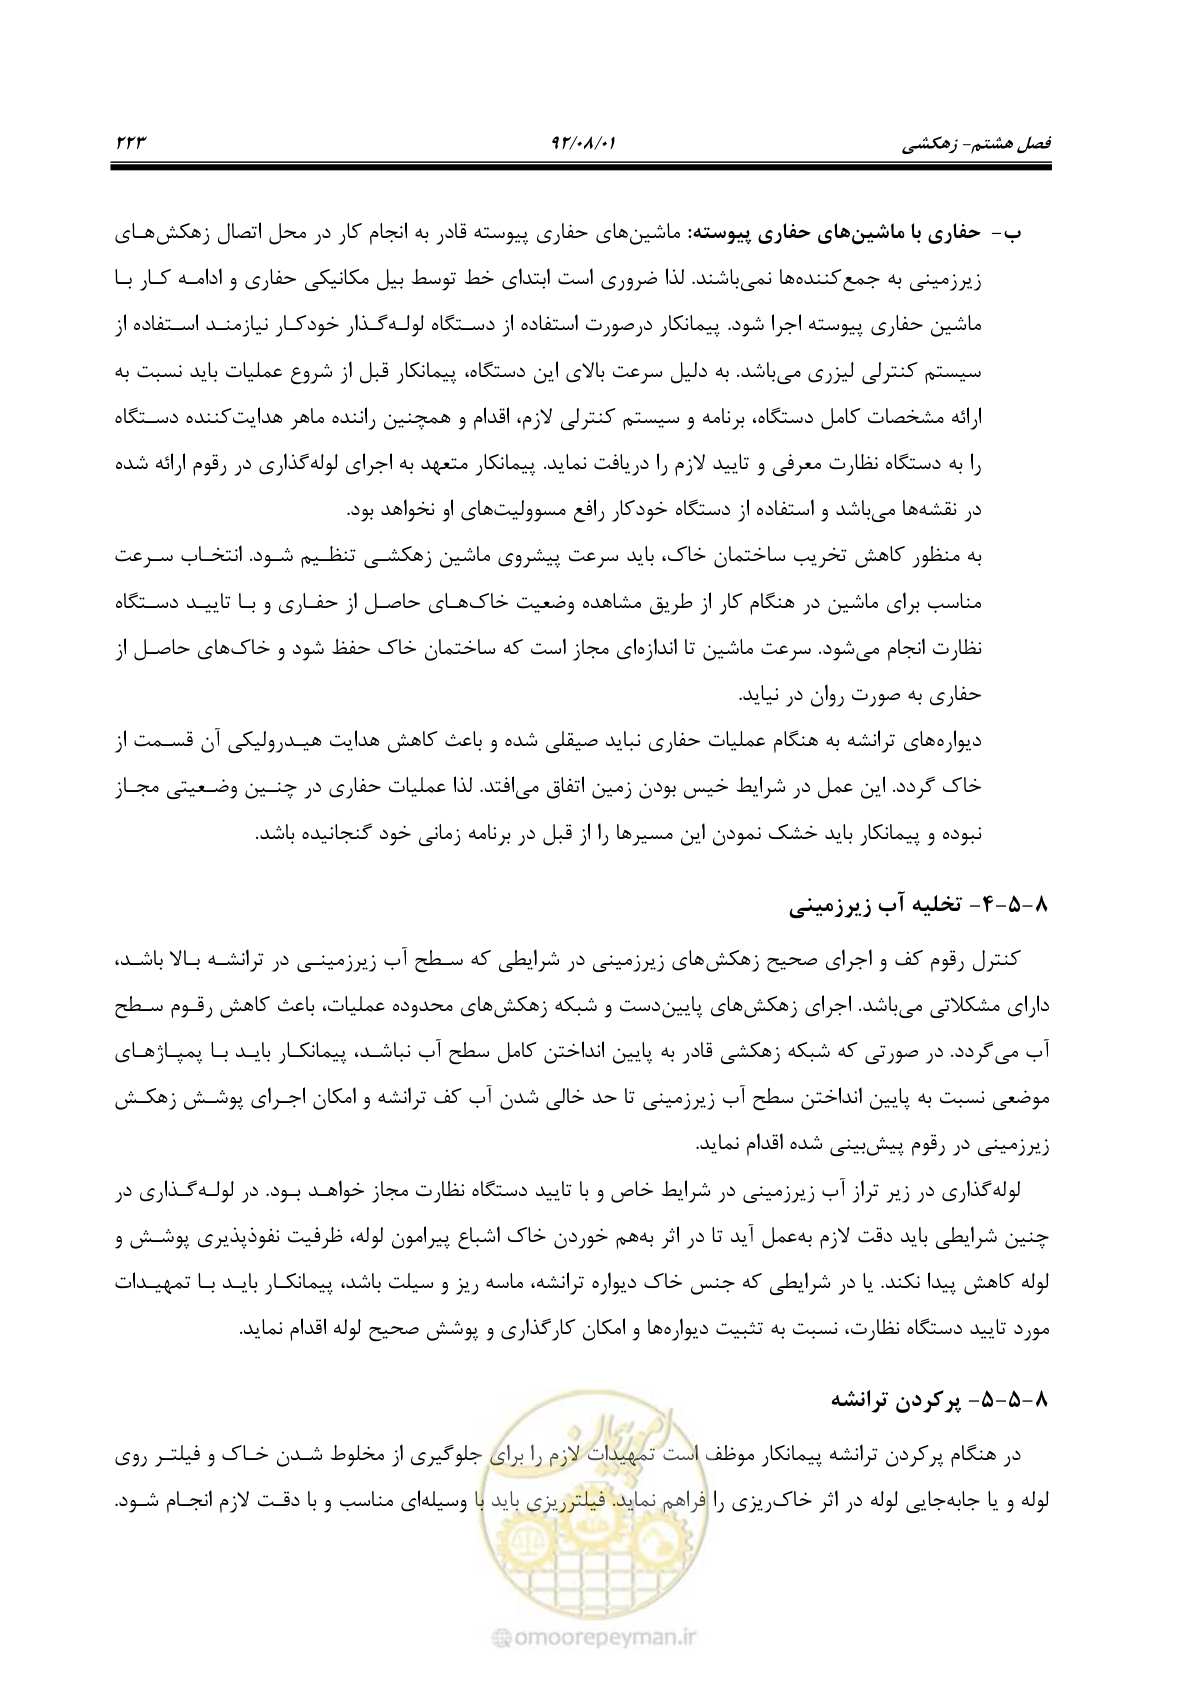 فصل هشتم- زهکشی ۹۲/۰۸/۰۱ ۲۲۳
ب- حفاری با ماشین‌های حفاری پیوسته: ماشین‌های حفاری پیوسته قادر به انجام کار در محل اتصال زهکش‌های
زیرزمینی به جمع‌کننده‌ها نمی‌باشند. لذا ضروری است ابتدای خط توسط بیل مکانیکی حفاری و ادامه کار با
ماشین حفاری پیوسته اجرا شود. پیمانکار درصورت استفاده از دستگاه لوله‌گذار خودکار نیازمند استفاده از
سیستم کنترلی لیزری می‌باشد. به دلیل سرعت بالای این دستگاه، پیمانکار قبل از شروع عملیات باید نسبت به
ارائه مشخصات کامل دستگاه، برنامه و سیستم کنترلی لازم، اقدام و همچنین راننده ماهر هدایت‌کننده دستگاه
را به دستگاه نظارت معرفی و تایید لازم را دریافت نماید. پیمانکار متعهد به اجرای لوله‌گذاری در رقوم ارائه شده
در نقشه‌ها می‌باشد و استفاده از دستگاه خودکار رافع مسوولیت‌های او نخواهد بود.
به منظور کاهش تخریب ساختمان خاک، باید سرعت پیشروی ماشین زهکشی تنظیم شود. انتخاب سرعت
مناسب برای ماشین در هنگام کار از طریق مشاهده وضعیت خاک‌های حاصل از حفاری و با تایید دستگاه
نظارت انجام می‌شود. سرعت ماشین تا اندازه‌ای مجاز است که ساختمان خاک حفظ شود و خاک‌های حاصل از
حفاری به صورت روان در نیاید.
دیواره‌های ترانشه به هنگام عملیات حفاری نباید صیقلی شده و باعث کاهش هدایت هیدرولیکی آن قسمت از
خاک گردد. این عمل در شرایط خیس بودن زمین اتفاق می‌افتد. لذا عملیات حفاری در چنین وضعیتی مجاز
نبوده و پیمانکار باید خشک نمودن این مسیرها را از قبل در برنامه زمانی خود گنجانیده باشد.
۸-۵-۴- تخلیه آب زیرزمینی
کنترل رقوم کف و اجرای صحیح زهکش‌های زیرزمینی در شرایطی که سطح آب زیرزمینی در ترانشه بالا باشد،
دارای مشکلاتی می‌باشد. اجرای زهکش‌های پایین‌دست و شبکه زهکش‌های محدوده عملیات، باعث کاهش رقوم سطح
آب می‌گردد. در صورتی که شبکه زهکشی قادر به پایین انداختن کامل سطح آب نباشد، پیمانکار باید با پمپاژهای
موضعی نسبت به پایین انداختن سطح آب زیرزمینی تا حد خالی شدن آب کف ترانشه و امکان اجرای پوشش زهکش
زیرزمینی در رقوم پیش‌بینی شده اقدام نماید.
لوله‌گذاری در زیر تراز آب زیرزمینی در شرایط خاص و با تایید دستگاه نظارت مجاز خواهد بود. در لوله‌گذاری در
چنین شرایطی باید دقت لازم به‌عمل آید تا در اثر به‌هم خوردن خاک اشباع پیرامون لوله، ظرفیت نفوذپذیری پوشش و
لوله کاهش پیدا نکند. یا در شرایطی که جنس خاک دیواره ترانشه، ماسه ریز و سیلت باشد، پیمانکار باید با تمهیدات
مورد تایید دستگاه نظارت، نسبت به تثبیت دیواره‌ها و امکان کارگذاری و پوشش صحیح لوله اقدام نماید.
۸-۵-۵- پرکردن ترانشه
در هنگام پرکردن ترانشه پیمانکار موظف است تمهیدات لازم را برای جلوگیری از مخلوط شدن خاک و فیلتر روی
لوله و یا جابه‌جایی لوله در اثر خاک‌ریزی را فراهم نماید. فیلترریزی باید با وسیله‌ای مناسب و با دقت لازم انجام شود.
امور پیمان
omoorepeyman.ir